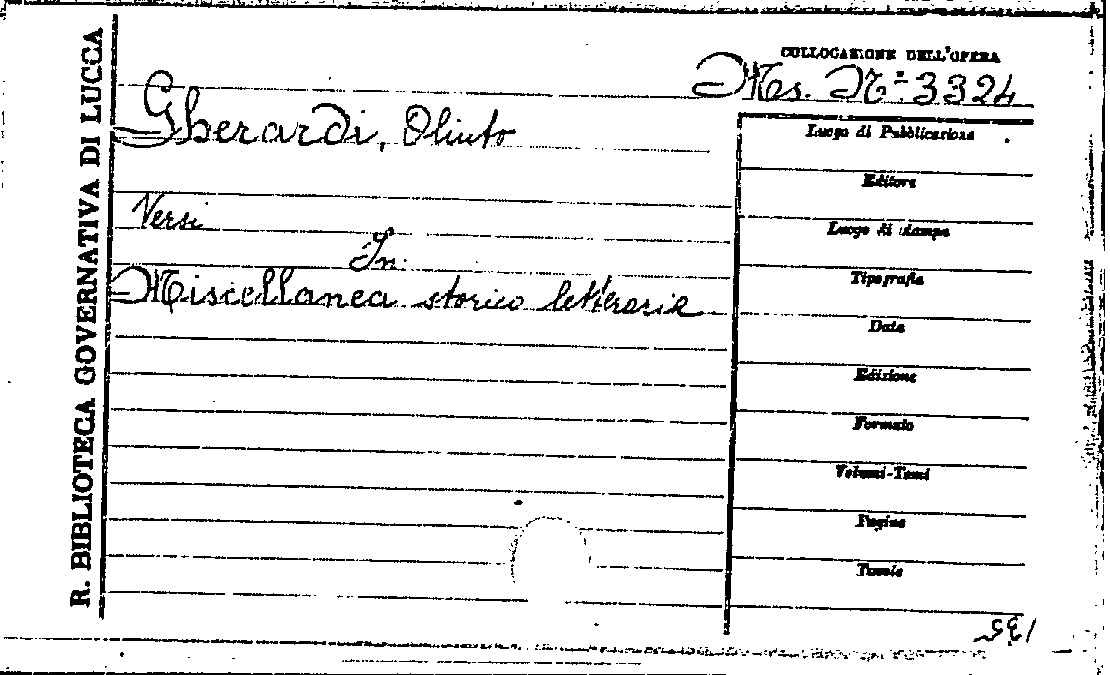 R. BIBLIOTECA GOVERNATIVA DI LUCCA
COLLOCAZIONE DELL'OPERA
Ms. N.º 3324
Gherardi, Olinto
Versi
In:
Miscellanea storico letteraria
Luogo di Pubblicazione
Editore
Luogo di stampa
Tipografia
Data
Edizione
Formato
Volumi-Tomi
Pagine
Tavole
135